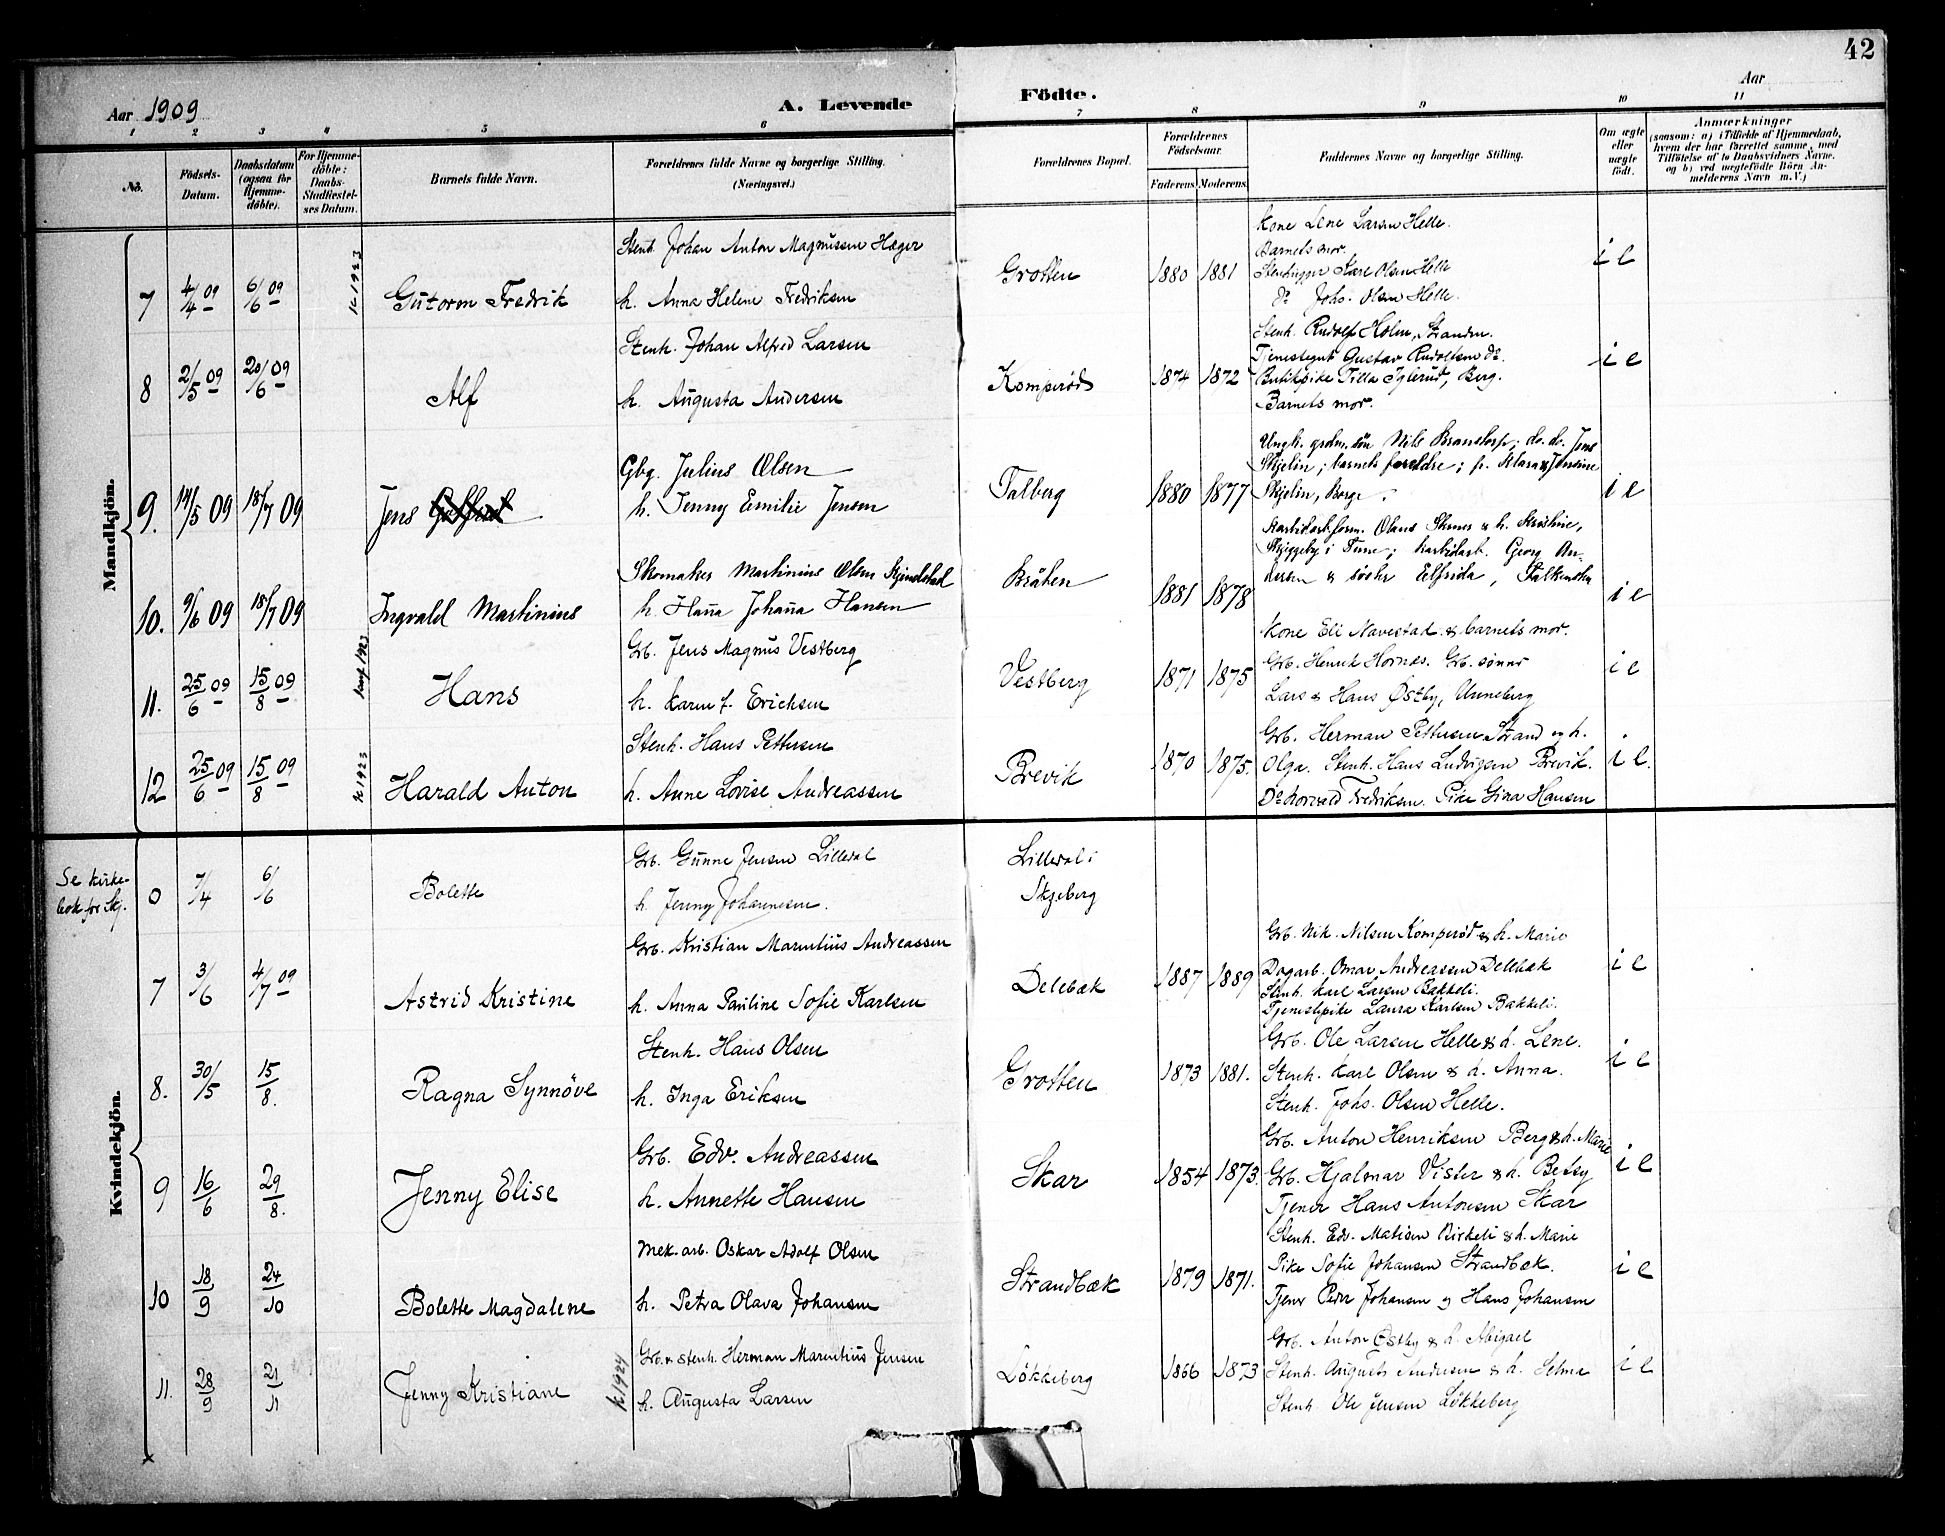 42
Aar 1909
A. Levende Födte.
Aar
1 2 3 4 5 6 7 8 9 10 11
No.
Födsels-Datum.
Daabsdatum (ogsaa for Hjemme-döbte).
For Hjemme-döbte: Daabs-Stadfæstel-ses Datum.
Barnets fulde Navn.
Forældrenes fulde Navne og borgerlige Stilling. (Næringsvei.)
Forældrenes Bopæl.
Forældrenes Födselsaar.
Faderens Moderens
Faddernes Navne og borgerlige Stilling.
Om ægte eller uægte födt.
Anmærkninger
(saasom: a) i Tilfælde af Hjemmedaab, hvem der har forrettet samme, med Tilföielse af to Daabsvidners Navne. og b) ved uægtefödte Börn Anmelderens Navn m.V.)
Mandkjön.
7 4/4 09 6/6 09 K 1923 Gutorm Fredrik
Stenh. Johan Anton Magnussen Hæger
h. Anna Helene Fredriksen
Grotten 1880 1881
Kone Lene Larsen Helle.
Barnets mor.
Stenhugger Karl Olsen Helle
do Johs. Olsen Helle.
i e
8 2/5 09 20/6 09 Alf
Stenh. Johan Alfred Larsen
h. Augusta Andersen
Komperöd 1874 1872
Stenh. Rudolf Holm, Stranden.
Tjenestegut Gustav Rudolfsen do.
Butikpike Tilla Iglerud, Berg.
Barnets mor.
i e
9. 14/5 09 18/7 09 Jens
Gbg. Julius Olsen
h. Jenny Emilie Jensen
Talberg 1880 1877
Ungk. grdm. søn Nils Brandtorp; do. do. Jens
Skjelin; barnets foreldre; p. Klara & Jensine
Skjelin, Borge.
i e
10. 9/6 09 18/7 09 Ingvald Martinius
Skomaker Martinius Olsen
h. Hanna Johanna Hansen
Bråten 1881 1878
Karbidarb.form. Olaus & h. Kristine,
i Tune; karbidarb. Georg An-
dersen & søster Elfrida,
i e
11. 25/6 09 15/8 09 1923 Hans
Grb. Jens Magnus Vestberg
h. Karen f. Erichsen
Vestberg 1871 1875
Kone Eli Navestad & barnets mor.
Grb. Henrik Hornæs. Grb. sønner
Lars & Hans Østby, Unneberg
i e
12 25/6 09 15/8 09 K 1923 Harald Anton
Stenh. Hans Pettersen
h. Anne Lovise Andreassen
Brevik 1870 1875.
Grb. Herman Pettersen Strand og h.
Olga. Stenh. Hans Ludvigsen Brevik.
Do Torvald Fredriksen. Pike Gina Hansen
i e.
Kvindekjön.
Se kirke-
bok for Skj.
0 7/4 6/6 Bolette
Grb. Gunne Jensen Lilledal
h. Jenny Johannesen.
Lilledal i
Skjeberg
7 3/6 4/7 09 Astrid Kristine
Grb. Kristian Marentius Andreassen
h. Anna Pauline Sofie Karlsen
Delebæk 1887 1889
Grb. Nik. Nilsen Komperöd & h. Marie
Dagarb. Omar Andreassen Delebæk
Stenh. Karl Larsen Bakkeli.
Tjenestepike Laura Karlsen Bakkeli.
i e
8. 30/5 15/8. Ragna Synnöve
Stenh. Hans Olsen
h. Inga Eriksen
Grotten 1873 1881.
Grb. Ole Larsen Helle & h. Lene.
Stenh. Karl Olsen & h. Anna.
Stenh. Johs. Olsen Helle.
i e
9 16/6 29/8. Jenny Elise
Grb. Edv. Andreassen
h. Annette Hansen
Skar 1854 1873.
Grb. Anton Henriksen Berg & h. Marie
Grb. Hjalmar Vister & h. Betsy
Tjener Hans Antonsen Skar
i e
10 18/9 24/10 Bolette Magdalene
Mek. arb. Oskar Adolf Olsen
h. Petra Olava Johansen
Strandbæk 1879 1871.
Stenh. Edv. Matisen Birkeli & h. Marie
Pike Sofie Johansen Strandbæk.
Tjener Peder Johansen og Hans Johansen
i e
11. 28/9 21/11 Jenny Kristiane
K. 1924
Grb. & stenh. Herman Marentius Jensen
h. Augusta Larsen
Lökkeberg 1866 1873
Grb. Anton Østby & h. Abigael
Stenh. August Andersen & h. Selma
Stenh. Ole Jensen Lökkeberg
i e
x